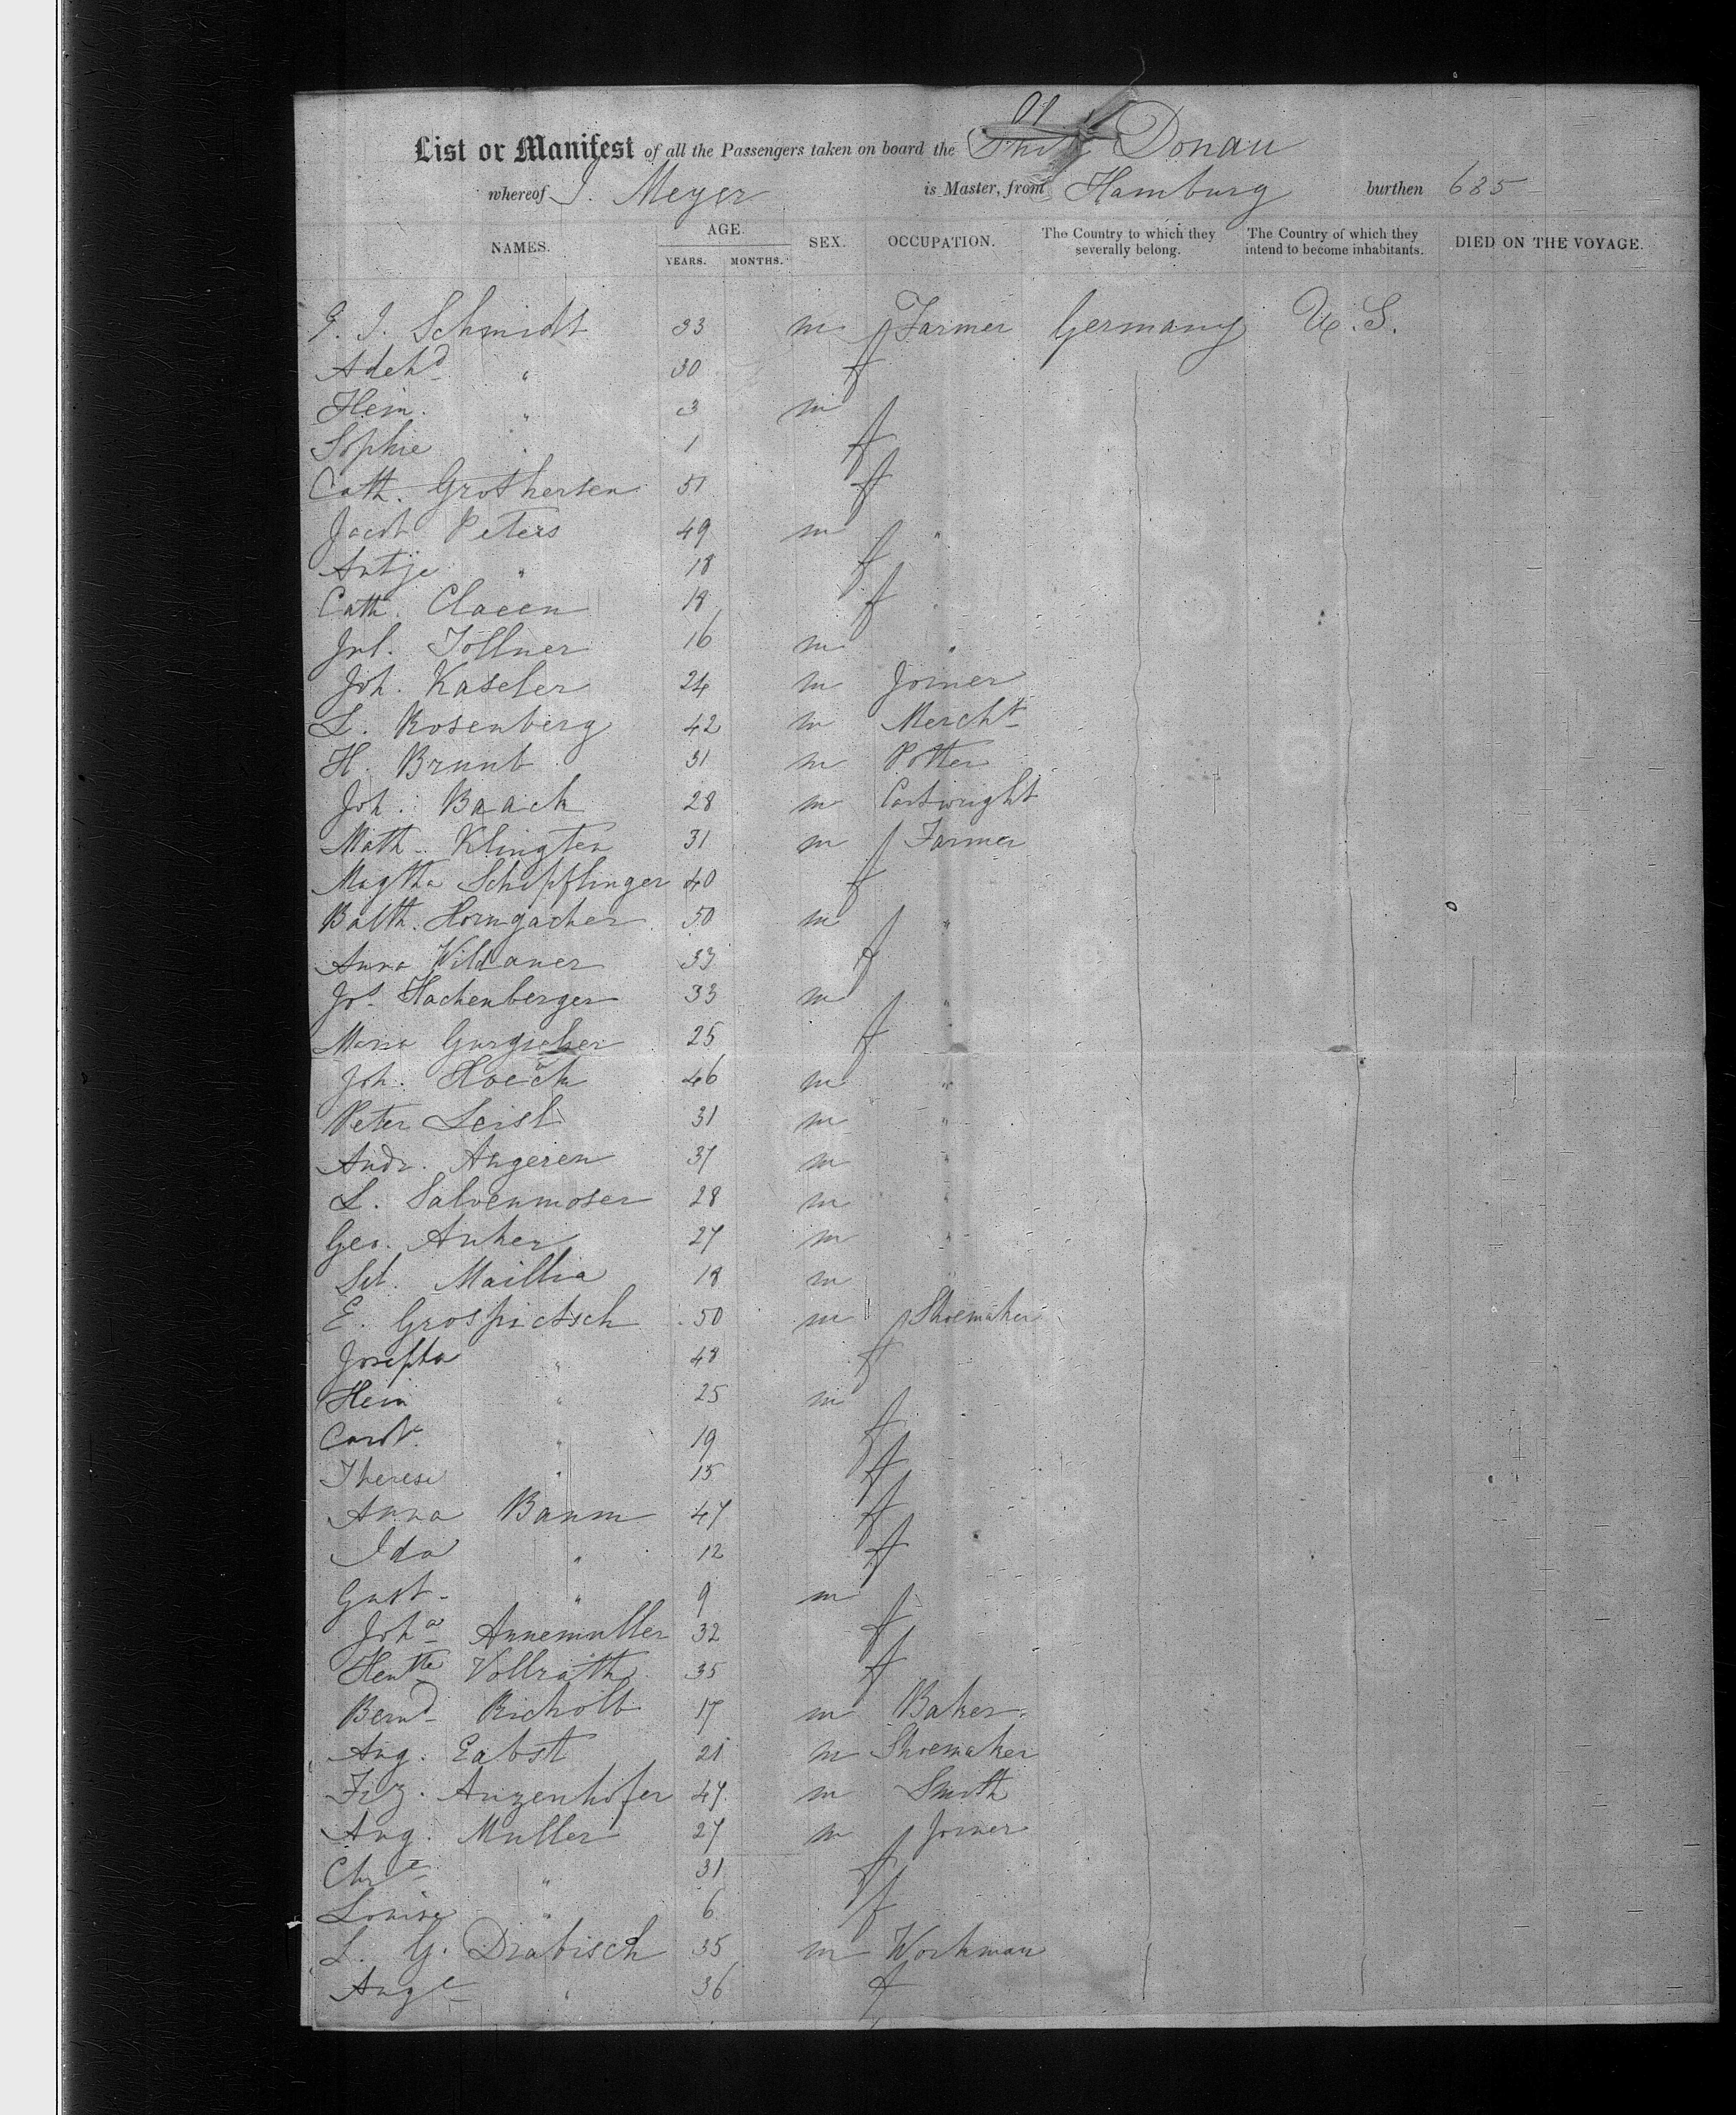 List or Manifest of all the Passengers taken on board the Ship Donau
whereof J. Meyer is Master, from Hamburg burthen 685
NAMES. AGE. YEARS. MONTHS. SEX. OCCUPATION. The Country to which they severally belong. The Country of which they intend to become inhabitants. DIED ON THE VOYAGE.
G. J. Schmidt 33 m Farmer Germany U.S.
Adehd " 30 f
Hein. " 3 m
Sophie " 1 f
Cath. Grothersen 51 f
Jacob Peters 49 m "
Antje " 18 f
Cath. Claeen 18 f "
Jul. Tollner 16 m "
Joh. Kaseler 24 m Joiner
L. Rosenberg 42 m Mercht
H. Brunb 31 m Potter
Joh. Baack 28 m Cartwright
Math. Klingten 31 m Farmer
Magtha Schipflinger 40 f
Balth. Horngacher 50 m "
Anna Wildaner 33 f
Jos. Hachenberger 33 m "
Maria 25 f
Joh. Hoeck 46 m "
Peter Leisl 31 m "
Andr. Angeren 37 m "
L. Salvenmoser 28 m "
Geo. Anker 27 m "
Seb. Maillia 18 m
E. Grospietsch 50 m Shoemaker
Josepha " 48 f
Hein " 25 m
Carol. " 19 f
Therese " 15 f
Anna Baum 47 f
Ida " 12 f
Gust. " 9 m
Joha Annemuller 32 f
Hentte Vollrath 35 f
Bernd Richolt 17 m Baker
Aug. Eabst 21 m Shoemaker
Frz. Anzenhofer 47 m Smith
Aug. Muller 27 m Joiner
Chre " 31 f
Louise " 6 f
L. G. Drabisch 35 m Workman
Auge " 36 f